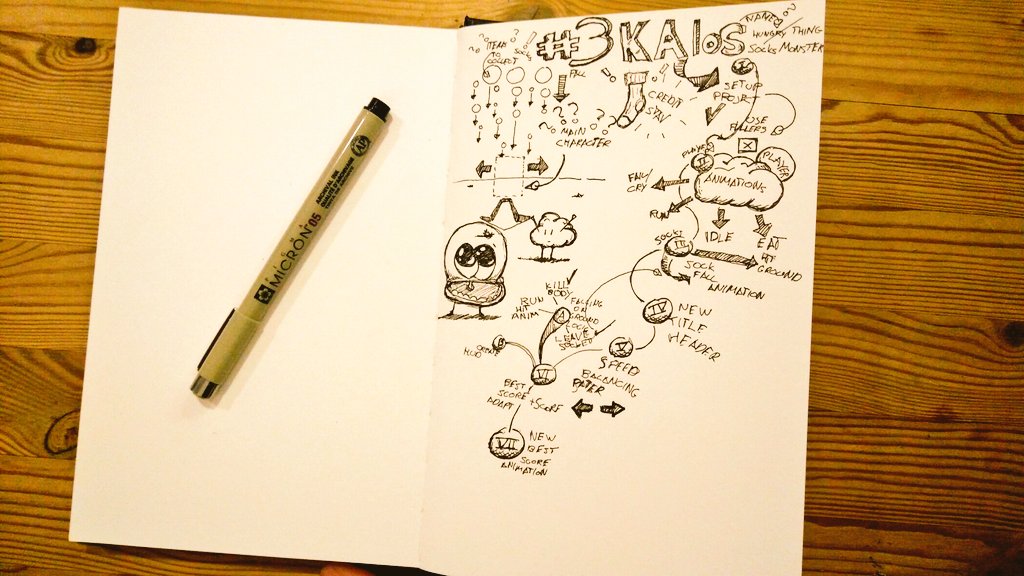 #3 KAloS
NAMED
HUNGRY THING
SOCKS MONSTER
ITEMS
TO
COLLECT
SOCKS
FALL
MAIN
CHARACTER
CREDIT
I
SETUP
PROJECT
USE
FILLERS
PLAYER
II
PLAYER
ANIMATIONS
CRY
RUN
IDLE
EAT
HIT
GROUND
SOCKS
III
SOCK
FALL
ANIMATION
IV
NEW
TITLE
HEADER
V
SPEED
BALANCING
KILL
BODY
RUN
HIT
ANIM
A
FALLING
ON
GROUND
SOCK
LEAVE
VI
BEST
SCORE + SCORE
ADAPT
VII
NEW
BEST
SCORE
ANIMATION
MICRON 05
ARCHIVAL INK
AP